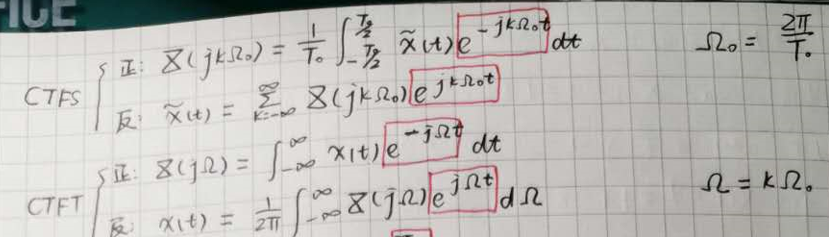 CTFS 正: X(jkΩ₀) = 1/T₀ ∫_{-T₀/2}^{T₀/2} x̃(t) e^{-jkΩ₀t} dt Ω₀ = 2π/T₀
反: x̃(t) = Σ_{k=-∞}^{∞} X(jkΩ₀) e^{jkΩ₀t}
CTFT 正: X(jΩ) = ∫_{-∞}^{∞} x(t) e^{-jΩt} dt
反: x(t) = 1/2π ∫_{-∞}^{∞} X(jΩ) e^{jΩt} dΩ Ω = kΩ₀